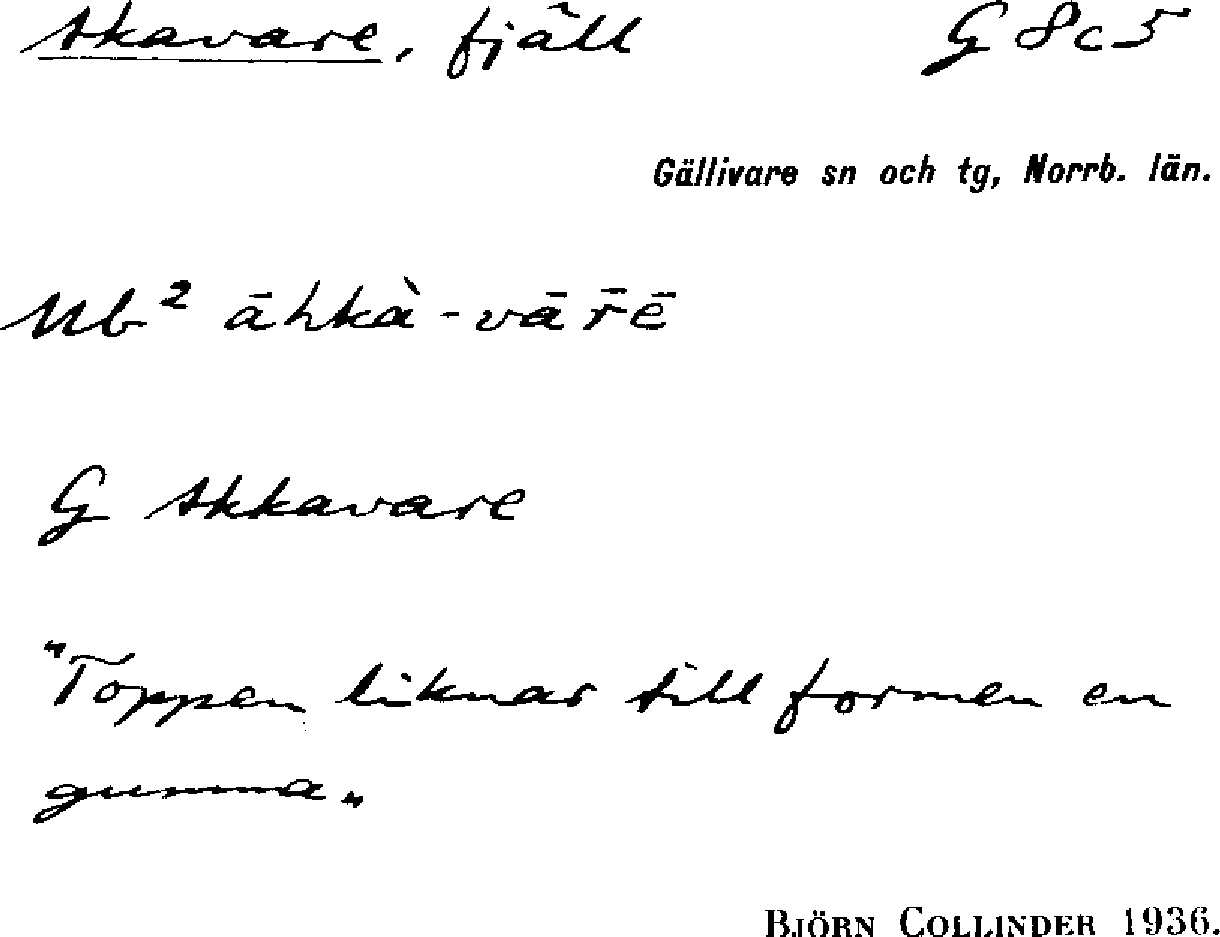 Akavare, fjäll G 8c5
Gällivare sn och tg, Norrb. län.
Nb² āhkà-vār̄ē
G Akkavare
"Toppen liknar till formen en
gumma"
BJÖRN COLLINDER 1936.